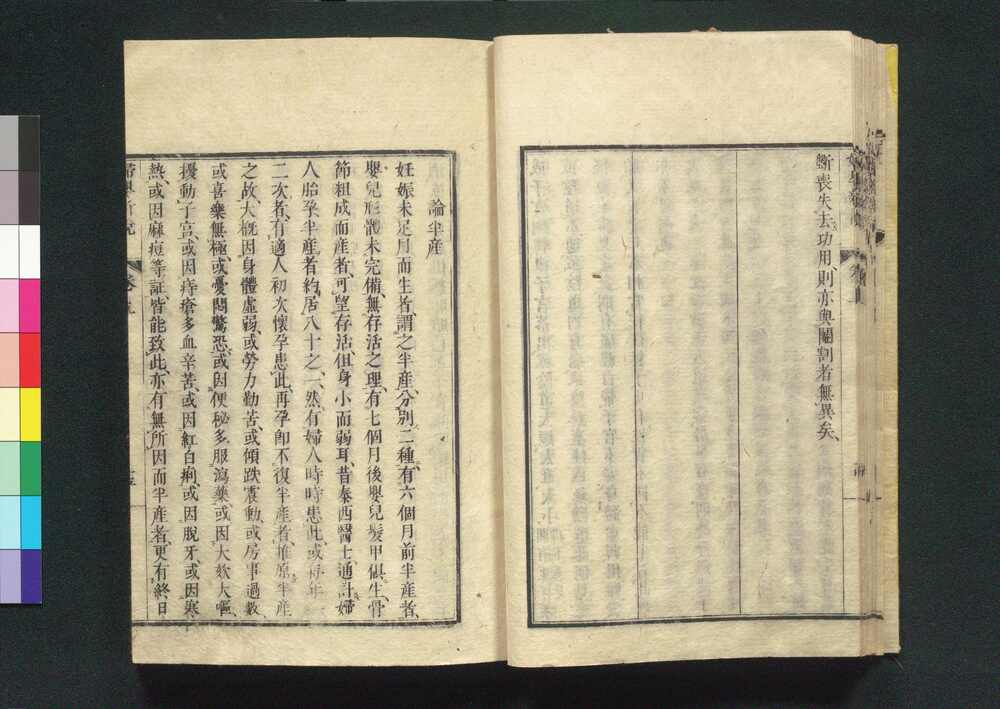 斷喪失去功用、則亦與閹割者無異矣、
論半產
妊娠未足月而生者、謂之半產、分別二種、有六個月前半產者、
嬰兒形體未完備、無存活之理、有七個月後嬰兒髮甲俱生、骨
節粗成而產者、可望存活、但身小而弱耳、昔泰西醫士、通計婦
人胎孕半產者、約居八十之一、然有婦人時時患此、或每年一
二次者、有適人初次懷孕患此、再孕卽不復半產者、推原半產
之故、大槪因身體虛弱、或勞力勤苦、或傾跌震動、或房事過數、
或喜樂無極、或憂悶驚恐、或因便秘多服瀉藥、或因大欬大嘔、
擾動子宮、或因痔瘡多血辛苦、或因紅白痢、或因脫牙、或因寒
熱、或因麻痘等証、皆能致此、亦有無所因而半產者、更有終日
卷五